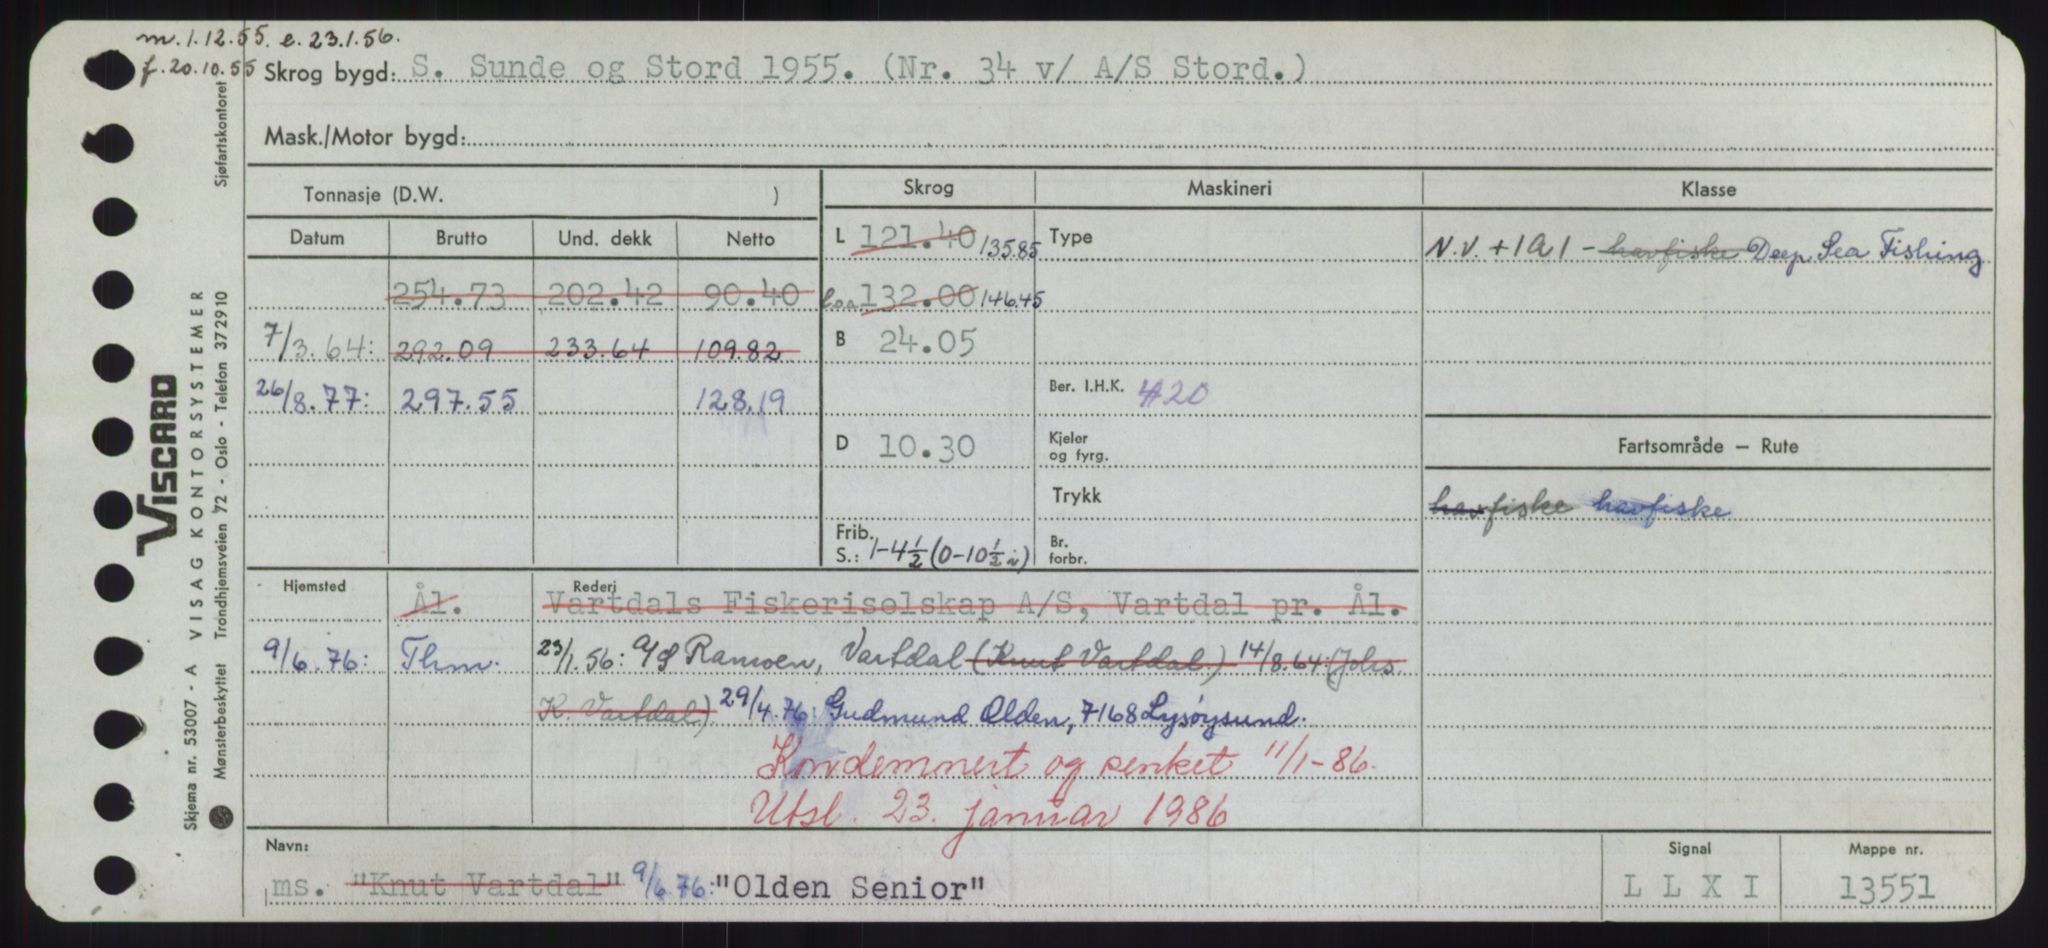 m. 1.12.55. e. 23.1.56.
f. 20.10.55
Skrog bygd: S. Sunde og Stord 1955. (Nr. 34 v/ A/S Stord.)
Mask./Motor bygd:
Tonnasje (D.W. )
Skrog
Maskineri
Klasse
Datum Brutto Und. dekk Netto
L 121.40 135.85
Type
N.V. + 1A1 - havfiske Deep Sea Fishing
254.73 202.42 90.40
Loa. 132.00 146.45
7/3.64: 292.09 233.64 109.82
B 24.05
26/8.77: 297.55 128.19
Ber. I.H.K. 420
D 10.30
Kjeler
og fyrg.
Fartsområde – Rute
Trykk
havfiske havfiske
Frib.
S.: 1-4½ (0-10½ i)
Br.
forbr.
Hjemsted
Ål.
Rederi
Vartdals Fiskeriselskap A/S, Vartdal pr. Ål.
9/6.76: Thm.
23/1.56: A/S Ramoen, Vartdal (Knut Vartdal.) 14/8.64: (Johs.
K. Vartdal) 29/4.76: Gudmund Olden, 7168 Lysøysund.
Kondemnert og senket 11/1-86.
Utsl. 23. januar 1986
Navn:
ms. "Knut Vartdal" 9/6.76: "Olden Senior"
Signal
L L X I
Mappe nr.
13551
Skjema nr. 53007 - A VISAG KONTORSYSTEMER Sjøfartskontoret
Mønsterbeskyttet Trondhjemsveien 72 - Oslo - Telefon 372910
VISCARD